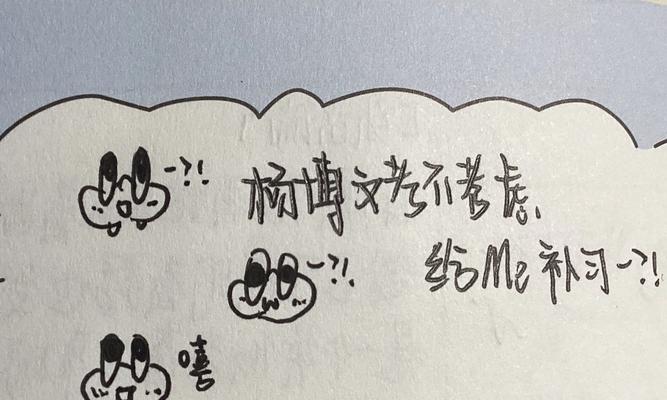 -?!
杨博文考不考虑、
给Me补习-?!
-?!
嘻